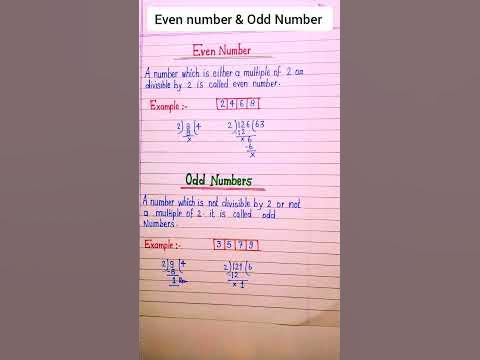 Even number & Odd Number
Even Number
A number which is either a multiple of 2 or
divisible by 2 is called even number.
Example :- 2 4 6 8
2)8(4 2)126(63
8 12
x x 6
-6
x
Odd Numbers
A number which is not divisible by 2 or not
a multiple of 2. it is called odd
Numbers.
Example :- 3 5 7 9
2)9(4
-8 -12
1 x 1